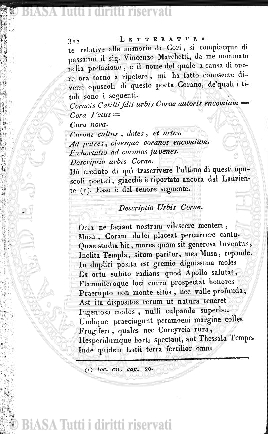 © BIASA Tutti i diritti riservati
LETTERATURA
te relative alle memorie di Cori, si compiacque di
passarmi il sig. Vincenzo Marchetti, da me nominato
nella prefazione, e il nome del quale a causa di ono-
re ora torno a ripetere, mi ha fatto conoscere di-
versi opuscoli di questo poeta Corano, de'quali i ti-
toli sono i seguenti.
urbis Corae autoris encomium =
Cora Vetus =
Cora nova.
Corana cultus, dotes, et artes.
Ad patres, civesque coranos encomium.
Exhortatio ad coranos juvenes.
Descriptio urbis Coran.
Ho creduto di quì trascrivere l'ultimo di questi opu-
scoli poetici, giacchè è riportata ancora dal Laurien-
te (1). Esso è del tenore seguente.
Descriptio Urbis Coran.
Ossa ne faciant nostram vilescere mentem,
Musa, Coram dulci placeat percurrere cantu.
Quae studia hic, mores quam sit generosa Iuventus,
Inclita Templa, situm pariter, mea Musa, reponde.
In duplici posita est gremio dignissima moles
Et ortu subito radians quod Apollo salutat,
Flammiferoque loci curru prospectat honores
Praerupto non monte sitos, nec valle profunda;
Ast ita dispositos rerum ut natura teneret
Ingeniosa modos, nulli calpanda superbo.
Undique praecingunt peramoeni margine colles
Frugiferi, quales nec Corcyreia rura,
Hesperidumque horti spectant, aut Thessala Tempe.
Inde quidem lati terra fertilior omni
(1) loc. cit. cap. 20.
© BIASA Tutti i diritti riservati